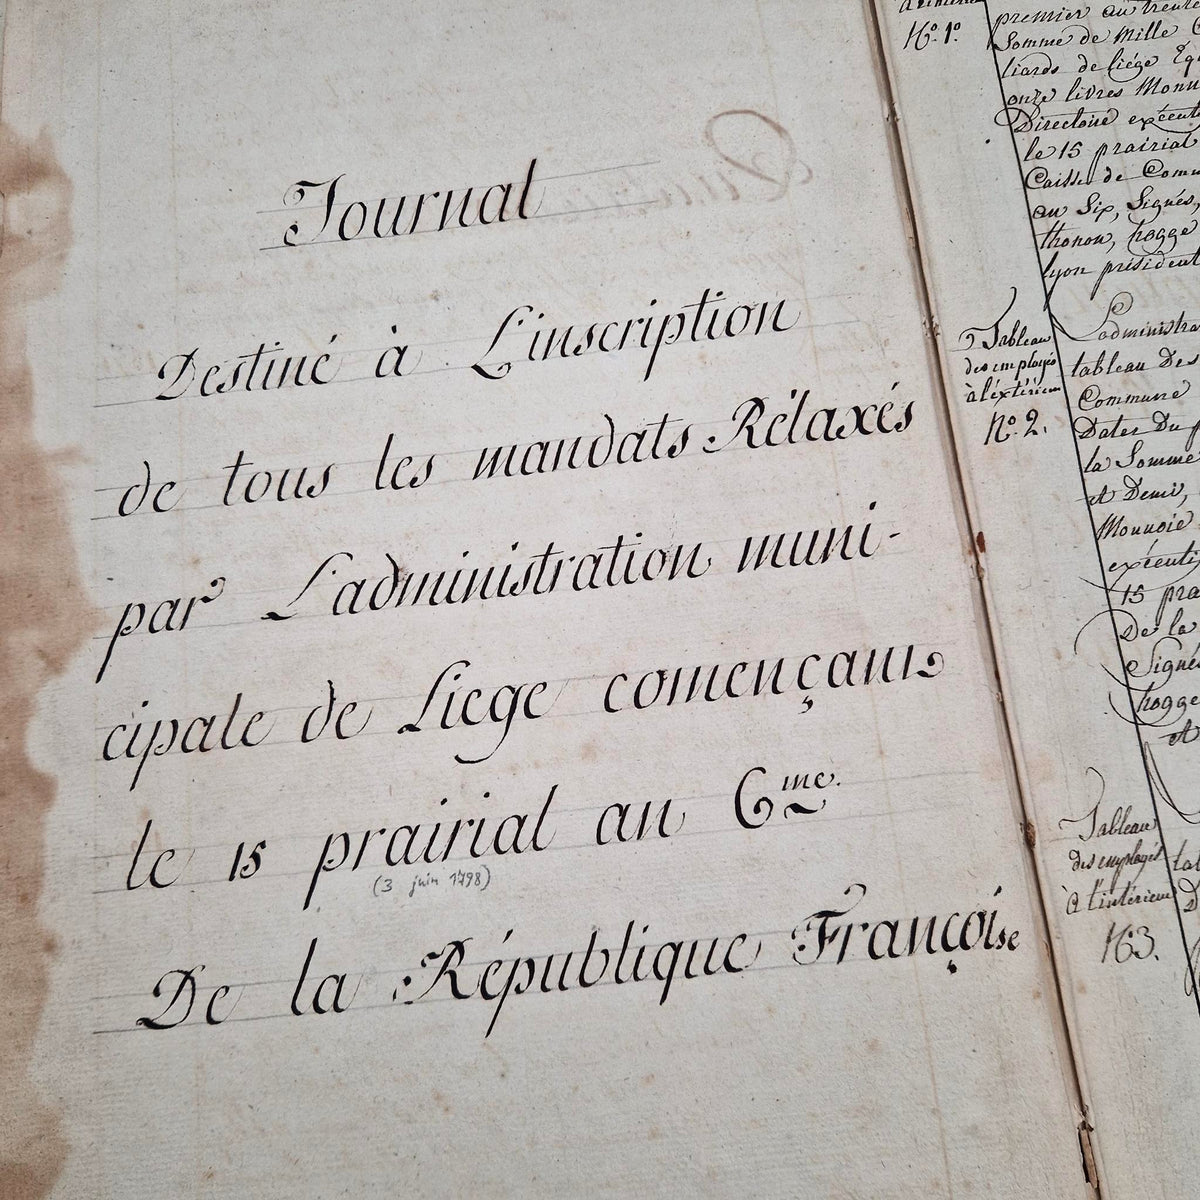 Journal
Destiné à L'inscription
de tous les mandats Rélaxés
par L'administration muni-
cipale de Liege començant
le 15 prairial an 6me.
(3 juin 1798)
De la République Françoise
No. 1o.
premier au trente
Somme de Mille
liards de liége
onze livres Monn
Directoire exécuti
le 15 prairial
Caisse de Comm
au Six, Signés,
thonon, hogge
lyon président
Tableau
des employés
à l'éxtérieur
No. 2.
L'administra
tableau Des
Commune
Dates Du
la Somme
et Demi,
Monnoie
exécuti
15 pra
De la
Signés
hogge
et
Tableau
des employés
à l'intérieur
No 3.
tab
D